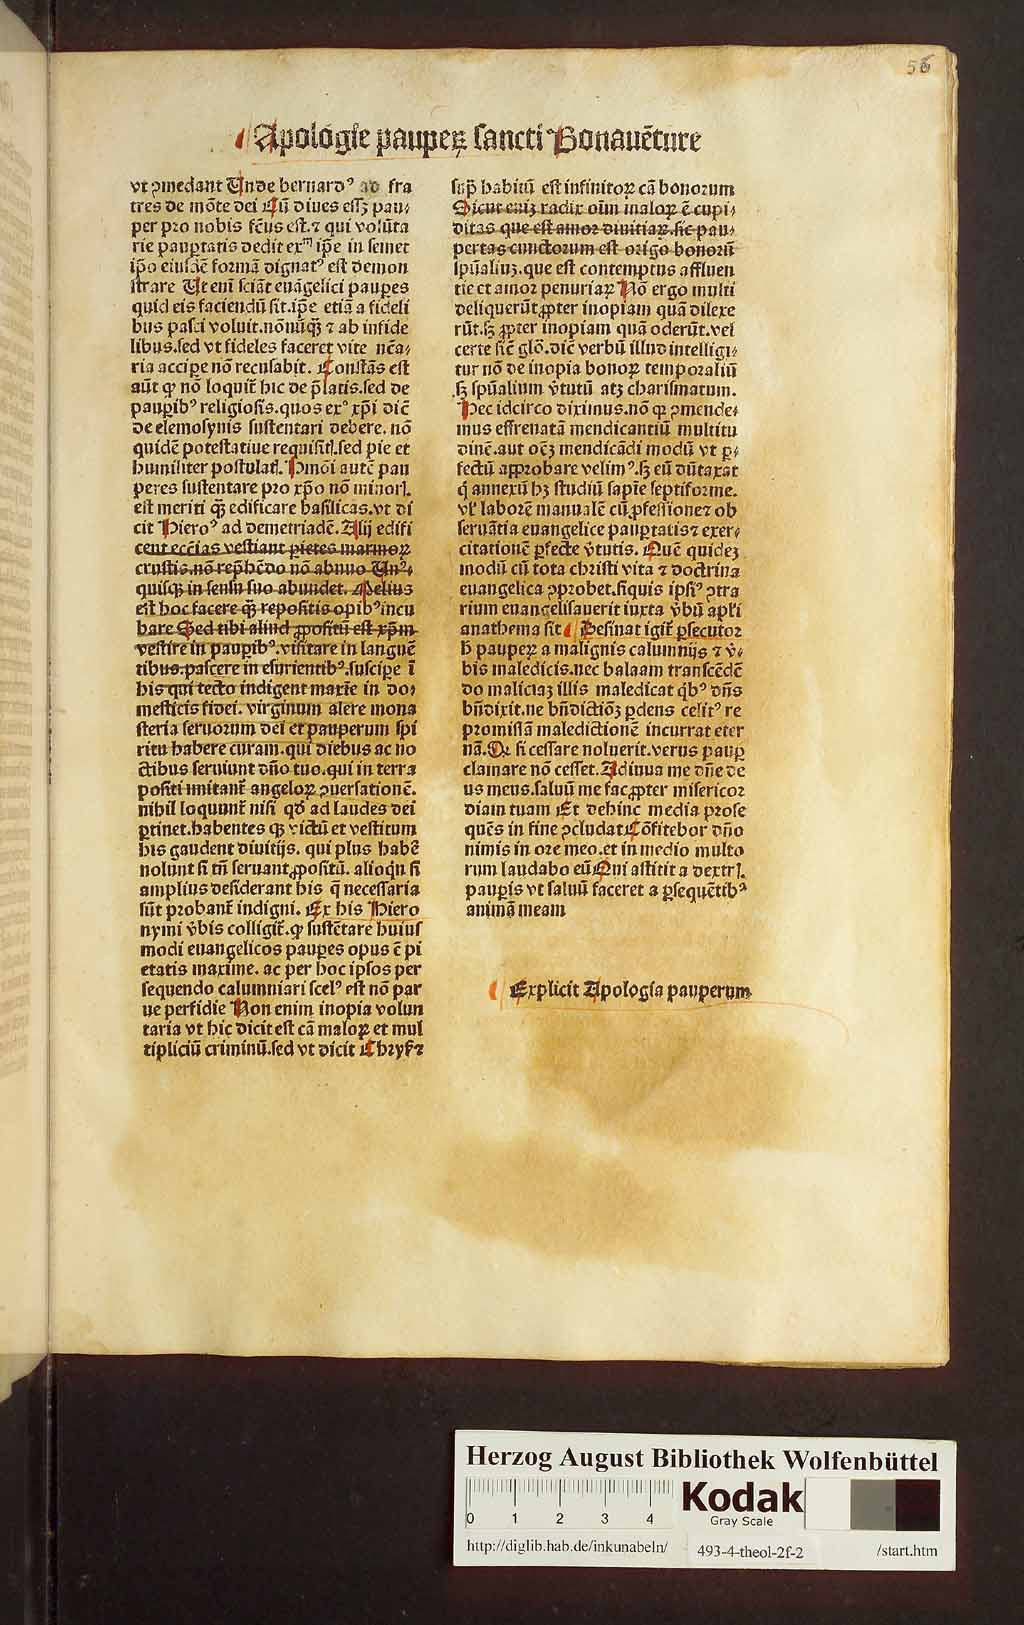 56
Apologie pauperꝝ sancti Bonauēture
vt ꝯmedant Unde bernardꝰ ad fra
tres de mōte dei Cū diues essꝫ pau⸗
per pro nobis fc̄us est.⁊ qui volūta
rie paupertatis dedit exᵐ ip̄e in semet
ip̄o eiusdē formā dignatꝰ est demon
strare Ut eni sciāt euāgelici pauꝑes
quid eis faciendū sit.ip̄e etiā a fideli
bus pasci voluit.nōnūqꝫ ⁊ ab infide
libus.sed vt fideles faceret vite nc̄a⸗
ria acciꝑe nō recusabit. Constās est
aūt ꝙ nō loquit̄ hic de p̄latis.sed de
pauꝑibꝰ religiosis.quos exꝰ xp̄i dic̄
de elemosynis sustentari debere. nō
quidē potestatiue requisit̄.sed pie et
humiliter postulat̄. Hmōi autē pau
peres sustentare pro xp̄o nō minor̄.
est meriti qꝫ edificare basilicas.vt di
cit Hieroꝰ ad demetriadē. Alij edifi
cent ecc̄ias vestiant p̄ietes marmoꝝ
crustis.nō rep̄hēdo nō abnuo Unꝰ⸗
quisqꝫ in sensu suo abundet. Melius
est hoc facere qꝫ repositis opibꝰ incu
bare Sed tibi aliud ꝓpositū est xp̄m
vestire in pauꝑibꝰ. visitare in languē
tibus.pascere in esurientibꝰ.suscipe ī
his qui tecto indigent maxīe in do⸗
mesticis fidei. virginum alere mona
steria seruorum dei et pauperum spi
ritu habere curam.qui diebus ac no
ctibus seruiunt dn̄o tuo.qui in terra
positi imitant̄ angeloꝝ ꝯuersationē.
nihil loqunnt̄ nisi qd̄ ad laudes dei
ꝑtinet.habentes qꝫ victū et vestitum
his gaudent diuitijs. qui plus habē
nolunt si tn̄ seruant ꝓpositū. alioqn̄ si
amplius desiderant his q̄ necessaria
sūt probant̄ indigni. Ex his Hiero
nymi v̄bis colligit̄.ꝙ sustētare huius
modi euangelicos pauꝑes opus ē pi
etatis maxime. ac per hoc ipsos per
sequendo calumniari scelꝰ est nō par
ue perfidie Non enim inopia volun
taria vt hic dicit est cā maloꝝ et mul
tipliciū criminū.sed vt dicit Chryſꝰ⁊
sup̄ habitū est infinitoꝝ cā bonorum
Sicut eniꝫ radix oīm maloꝝ ē cupi⸗
ditas que est amor diuitiaꝝ.sic pau⸗
pertas cunctorum est origo bonorū
spūaliuꝫ.que est contemptus affluen
tie et amor penuriaꝝ Nō ergo multi
deliquerūt ꝓpter inopiam quā dilexe
rūt.sꝫ ꝓpter inopiam quā oderūt.vel
certe sic̄ glō.dic̄ verbū illud intelligi⸗
tur nō de inopia bonoꝝ temporaliū
sꝫ spūalium v̄tutū atꝫ charismatum.
Hec idcirco diximus.nō qꝫ ꝯmende⸗
mus effrenatā mendicantiū multitu
dinē.aut oēꝫ mendicādi modū vt ꝑ⸗
fectū approbare velimꝰ.sꝫ eū dūtaxat
q̄ annexū hꝫ studiū sapīe septiforme.
vl̓ laborē manualē cū ꝓfessione⁊ ob
seruātia euangelice pauꝑtatis⁊ exer⸗
citationē ꝑfecte v̄tutis. Quē quideꝫ
modū cū tota christi vita ⁊ doctrina
euangelica ꝯprobet.siquis ipsiꝰ ꝯtra
rium euangelisauerit iuxta v̄bū apl̓i
anathema sit Desinat igit̄ ꝑsecutor
h̄ pauꝑeꝝ a malignis calumnijs ⁊ v̄⸗
bis maledicis.nec balaam transcēdē
do maliciaꝫ illis maledicat qb̄ꝰ dn̄s
bn̄dixit.ne bn̄dictiōꝫ ꝑdens celitꝰ re
promissā maledictionē incurrat eter
nā. Qꝫ si cessare noluerit.verus pauꝑ
clamare nō cesset. Adiuua me dn̄e de
us meus.saluū me fac ꝓpter misericor
diam tuam Et dehinc media prose
quēs in fine ꝯcludat Cōfitebor dn̄o
nimis in ore meo.et in medio multo
rum laudabo eū Qui astitit a dextr̄.
pauꝑis vt saluū faceret a ꝑsequētibꝰ
animā meam
Explicit Apologia pauperum
Herzog August Bibliothek Wolfenbüttel
0 1 2 3 4
Kodak
Gray Scale
http://diglib.hab.de/inkunabeln/ 493-4-theol-2f-2 /start.htm